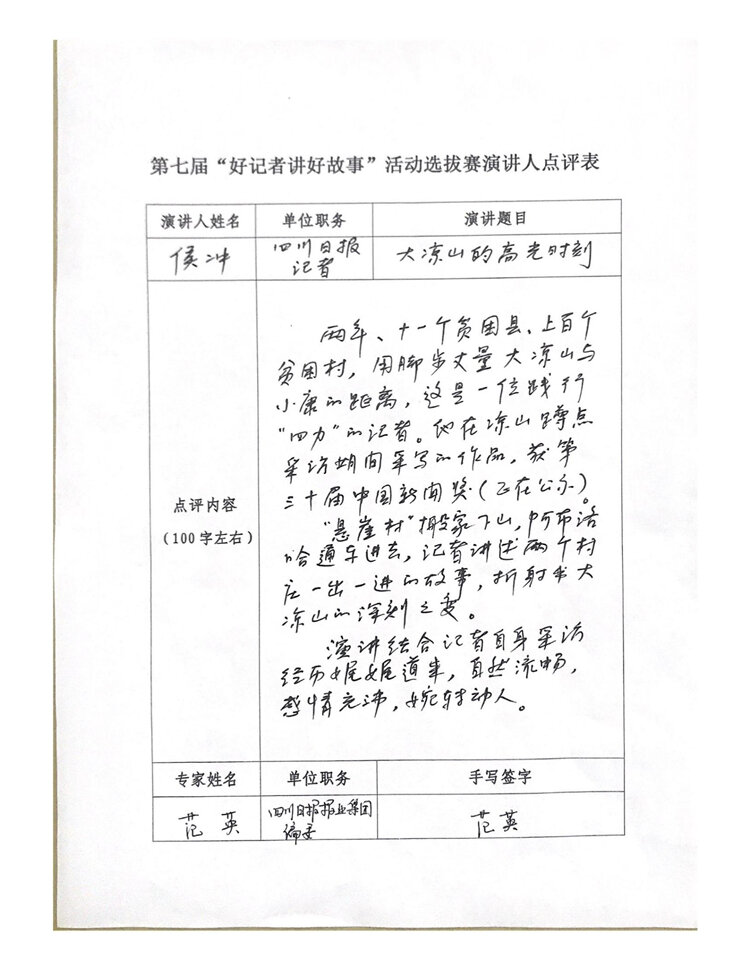 第七届“好记者讲好故事”活动选拔赛演讲人点评表
演讲人姓名 单位职务 演讲题目
侯冲 四川日报 大凉山的高光时刻
记者
点评内容
(100字左右)
两年、十一个贫困县、上百个
贫困村，用脚步丈量大凉山与
小康的距离，这是一位践行
“四力”的记者。他在凉山蹲点
采访期间采写的作品，获第
三十届中国新闻奖(正在公示)。
“悬崖村”搬家下山，阿布洛
哈通车进去，记者讲述两个村
庄一出一进的故事，折射出大
凉山的深刻之变。
演讲结合记者自身采访
经历娓娓道来，自然流畅，
感情充沛，婉转动人。
专家姓名 单位职务 手写签字
范英 四川日报报业集团 范英
编委